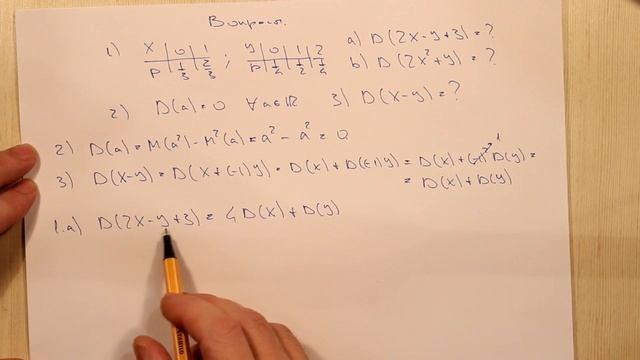 Вопросы.
1) X | 0 | 1 ; y | 0 | 1 | 2 a) D(2X-y+3)=?
P | 1/3 | 2/3 P | 1/4 | 1/2 | 1/4 b) D(2x²+y)=?
2) D(a)=0 ∀a∈ℝ 3) D(X-y)=?
2) D(a)=M(a²)-M²(a)=a²-a²=0
3) D(X-y)=D(X+(-1)y)=D(X)+D(-1)y)=D(X)+(-1)²D(y)=
=D(X)+D(y)
1.a) D(2X-y+3)=4D(X)+D(y)